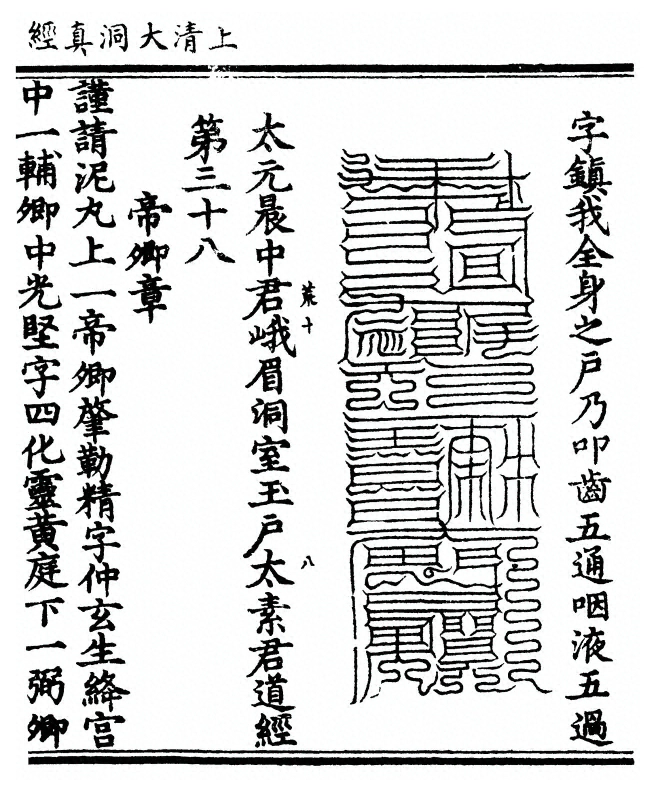 上清大洞真經
字鎮我全身之戶乃叩齒五通咽液五過
荒十
八
太元晨中君峨眉洞室玉戶太素君道經
第三十八
帝卿章
謹請泥丸上一帝卿肇勒精字仲玄生絳宮
中一輔卿中光堅字四化靈黃庭下一弼卿